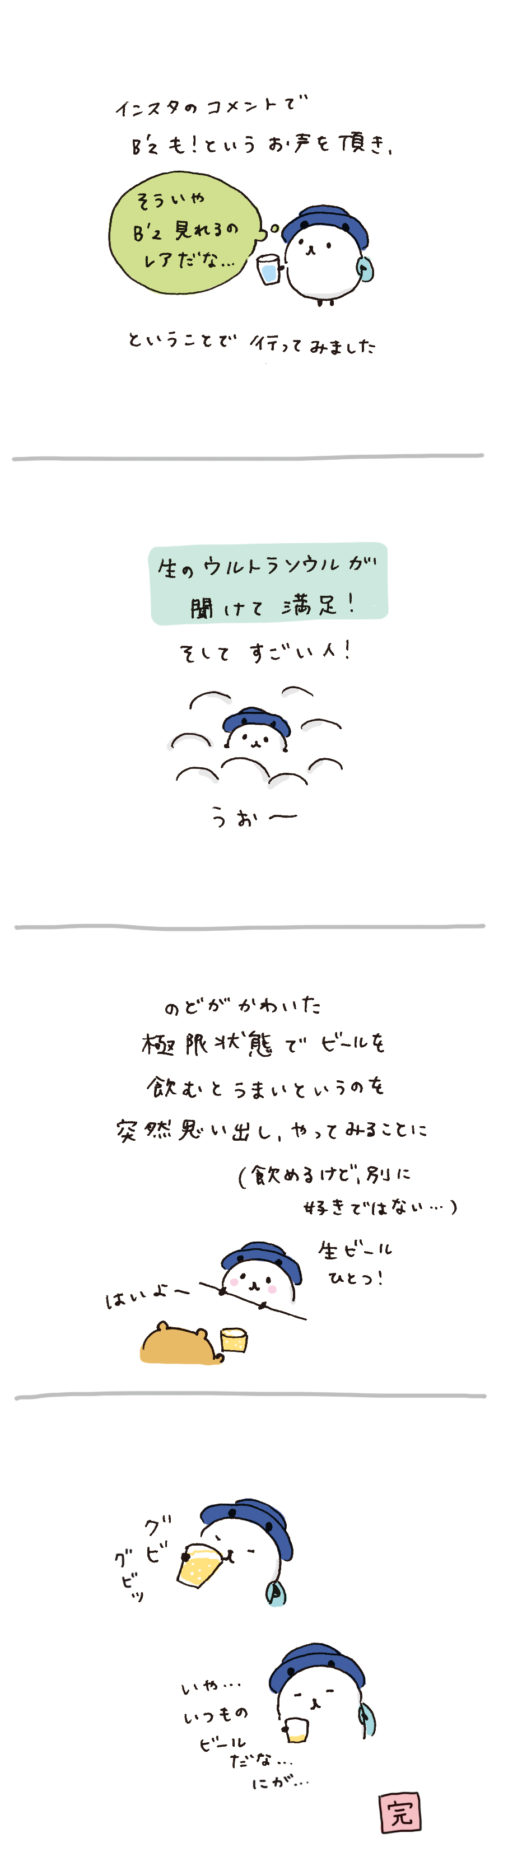 インスタのコメントで
B'z も！という お声を 頂き、
そういや
B'z 見れるの
レアだな…
ということで 行ってみました
生のウルトラソウルが
聞けて 満足！
そして すごい人！
うおー
のどが かわいた
極限状態で ビールを
飲むと うまいというのを
突然思い出し、やってみることに
(飲めるけど、別に
好きではない…)
生ビール
ひとつ！
はいよ〜
グビ
グビッ
いや…
いつもの
ビール
だな…
にが…
完